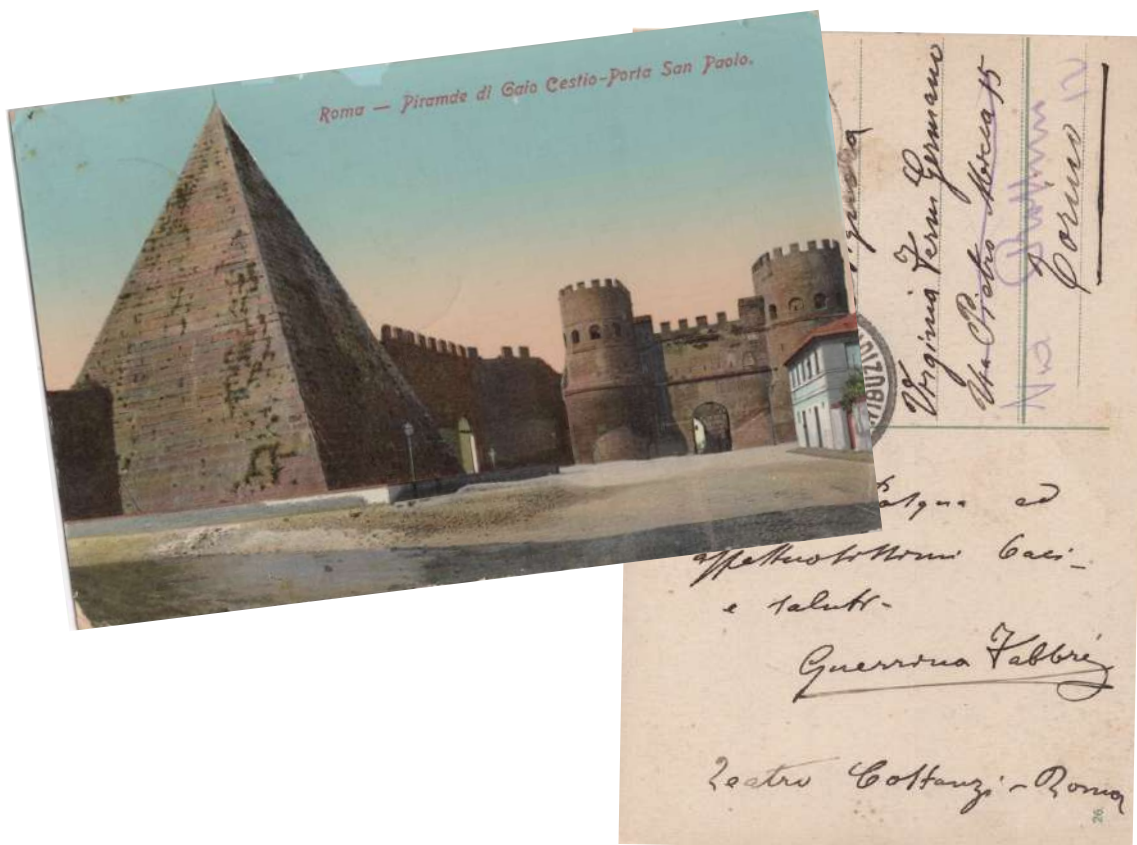 Roma — Piramde di Gaio Cestio-Porta San Paolo.
Virginia Ferni Germano
Via Pietro Micca 15
Via
Torino 12
ed
affettuosissimi baci
e saluti-
Guerrina Fabbri
Teatro Costanzi - Roma
26